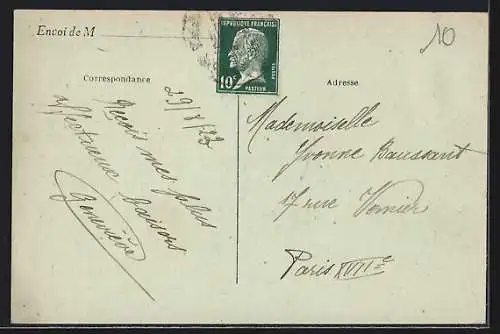 Envoi de M
10
RÉPUBLIQUE FRANÇAISE
10c
POSTES
PASTEUR
Correspondance
Adresse
29/8/23
Reçois mes plus
affectueux baisers
Geneviève
Mademoiselle
Yvonne Baussant
17 rue Vernier
Paris XVIIe